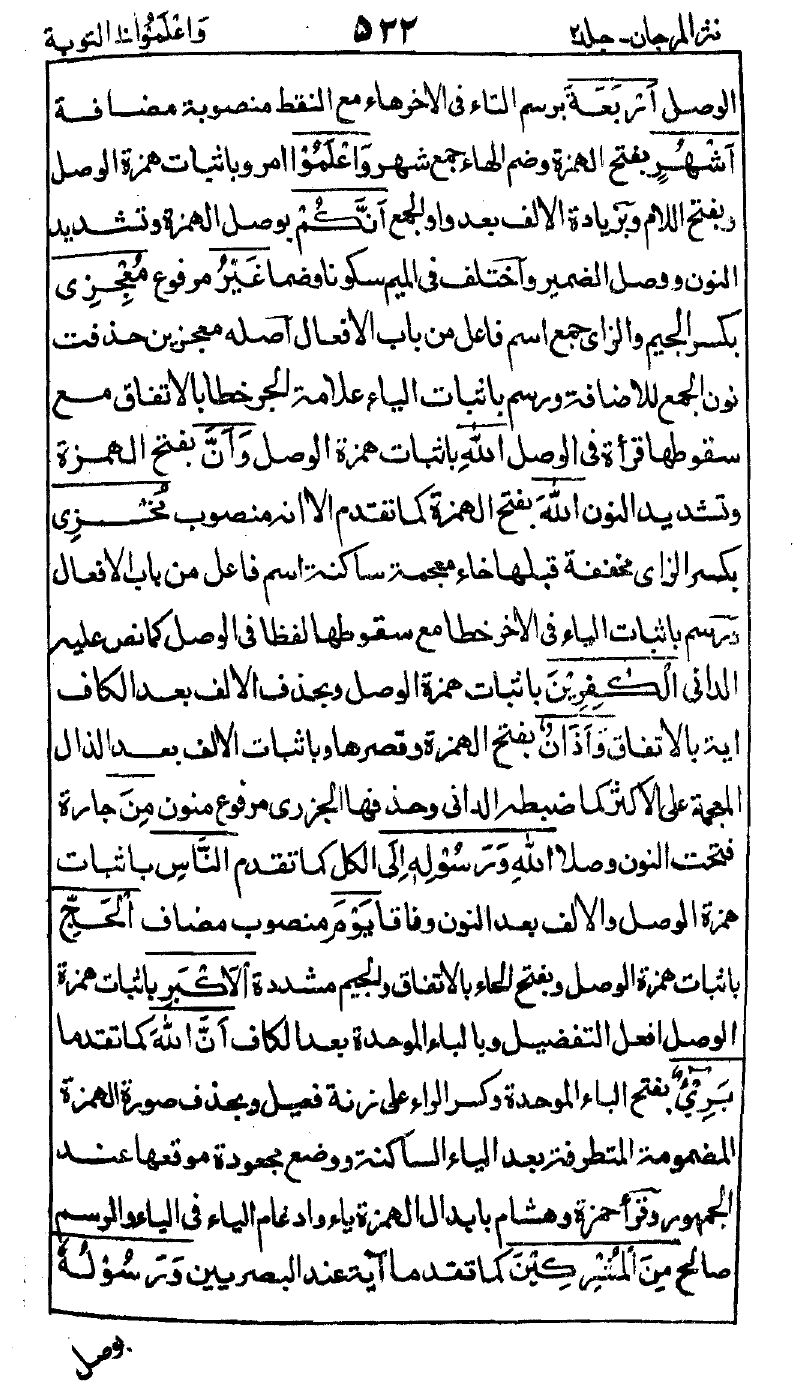 نثر المرجان - جلد٢ ٥٣٢ وَاعْلَمُوْٓا التوبة
الوصل اَرْبَعَةَ برسم التاء فی الاخر هاء مع النقط منصوبة مضافة
اَشْهُرٍ بفتح الهمزة وضم الهاء جمع شهر وَاعْلَمُوْٓا امر وباثبات همزة الوصل
وبفتح اللام وبزیادة الالف بعد واو الجمع اَنَّكُمْ بوصل الهمزة وتشدید
النون ووصل الضمیر واختلف فی المیم سکونا وضما غَیْرُ مرفوع مُعْجِزِی
بکسر الجیم والزای جمع اسم فاعل من باب الافعال اصله معجزین حذفت
نون الجمع للاضافة ورسم باثبات الیاء علامة الجر خطا بالاتفاق مع
سقوطها قرأة فی الوصل اللّٰهِ باثبات همزة الوصل وَاَنَّ بفتح الهمزة
وتشدید النون اللّٰهَ بفتح الهمزة کما تقدم الا انه منصوب مُخْزِی
بکسر الزای مخففة قبلها خاء معجمة ساکنة اسم فاعل من باب الافعال
ورسم باثبات الیاء فی الاخر خطا مع سقوطها لفظا فی الوصل کما نص علیه
الدانی الْکٰفِرِیْنَ باثبات همزة الوصل وبحذف الالف بعد الکاف
ایة بالاتفاق وَاَذَانٌ بفتح الهمزة وقصرها وباثبات الالف بعد الذال
المعجمة علی الاکثر کما ضبطه الدانی وحذفها الجزری مرفوع منون مِنَ جارة
فتحت النون وصلا اللّٰهِ وَرَسُوْلِهٖ اِلَی الکل کما تقدم النَّاسِ باثبات
همزة الوصل والالف بعد النون وفاقا یَوْمَ منصوب مضاف الْحَجِّ
باثبات همزة الوصل وبفتح الحاء بالاتفاق والجیم مشددة الْاَکْبَرِ باثبات همزة
الوصل افعل التفضیل وبالباء الموحدة بعد الکاف اَنَّ اللّٰهَ کما تقدما
بَرِیْٓءٌ بفتح الباء الموحدة وکسر الراء علی زنة فعیل وبحذف صورة الهمزة
المضمومة المتطرفة بعد الیاء الساکنة ووضع مجعودة موقعها عند
الجمهور وقرأ حمزة وهشام بابدال الهمزة یاء وادغام الیاء فی الیاء والرسم
صالح مِنَ الْمُشْرِکِیْنَ کما تقدما آیة عند البصریین وَرَسُوْلُهٗ
بوصل